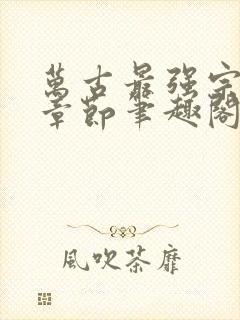 萬古最强宗
章節筆趣閣
風吹荼靡